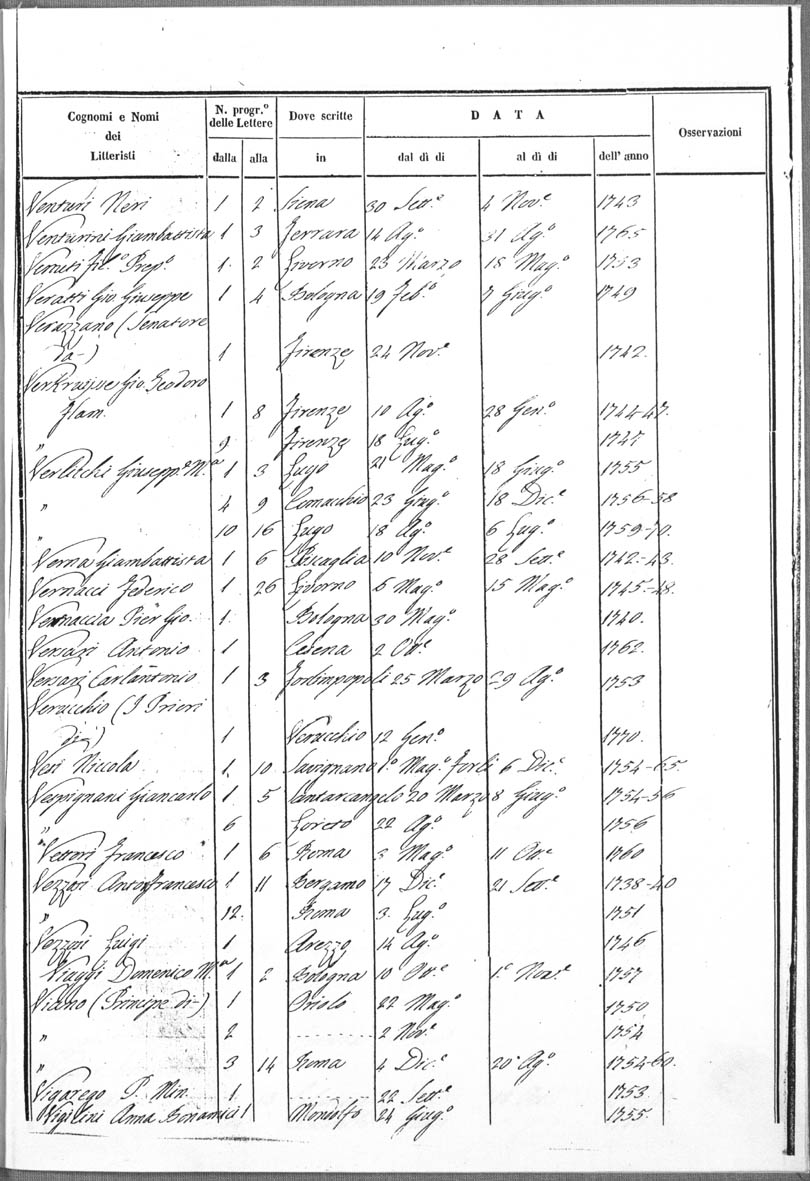 Cognomi e Nomi dei Litteristi
N. progr.° delle Lettere
Dove scritte
DATA
Osservazioni
dalla alla in dal dì di al dì di dell' anno
Venturi Neri 1 2 Siena 30 Sett.e 4 Nov.e 1743
Venturini Giambattista 1 3 Ferrara 14 Ag.o 31 Ag.o 1765
1. 2 Livorno 23 Marzo 18 Mag.o 1753
Veratti Gio. Giuseppe 1 4 Bologna 19 Feb.o 7 Giug.o 1749
Verazzano (Senatore
da-) 1 Firenze 24 Nov.e 1742.
Gio. Teodoro
Flam. 1 8 Firenze 10 Ag.o 28 Gen.o 1744-47.
" 9 Firenze 18 Lug.o 1747
Giusepp.e M.a 1 3 Lugo 21 Mag.o 18 Giug.o 1755
" 4 9 Comacchio 23 Giug.o 18 Dic.e 1756-58
" 10 16 Lugo 18 Ag.o 6 Lug.o 1759-70.
Verna Giambattista 1 6 10 Nov.e 28 Sett.e 1742-43.
Vernacci Federico 1 26 Livorno 6 Mag.o 15 Mag.o 1745-48.
Vernaccia Pier Gio. 1 Bologna 30 Mag.o 1740.
Versari Antonio 1 Cesena 2 Ott.e 1762.
Versari Carlantonio 1 3 Forlimpopoli 25 Marzo 29 Ag.o 1753
Verucchio (I Priori
di-) 1 Verucchio 12 Gen.o 1770.
Vesi Niccola 1. 10 Savignano 1.o Mag.o Forlì 6 Dic.e 1754-65.
Vespignani Giancarlo 1 5 Santarcangelo 20 Marzo 8 Giug.o 1754-56
" 6 Loreto 22 Ag.o 1756
"Vettori Francesco" 1 6 Roma 3 Mag.o 11 Ott.e 1760
Vezzosi Antonfrancesco 1 11 Bergamo 17 Dic.e 21 Sett.e 1738-40
" 12. Roma 3. Lug.o 1751
Luigi 1 Arezzo 14 Ag.o 1746
Viaggi Domenico M.a 1 2 Bologna 10 Ott.e 1.o Nov.e 1757
Viano (Principe di-) 1 Oriolo 22 Mag.o 1750
" 2 ........ 2 Nov.e 1754
" 3 14 Roma 4 Dic.e 20 Ag.o 1754-60.
Vigarego P. Min. 1. ........ 22 Sett.e 1753.
Anna Bonamici 1 Mondolfo 24 Giug.o 1755.